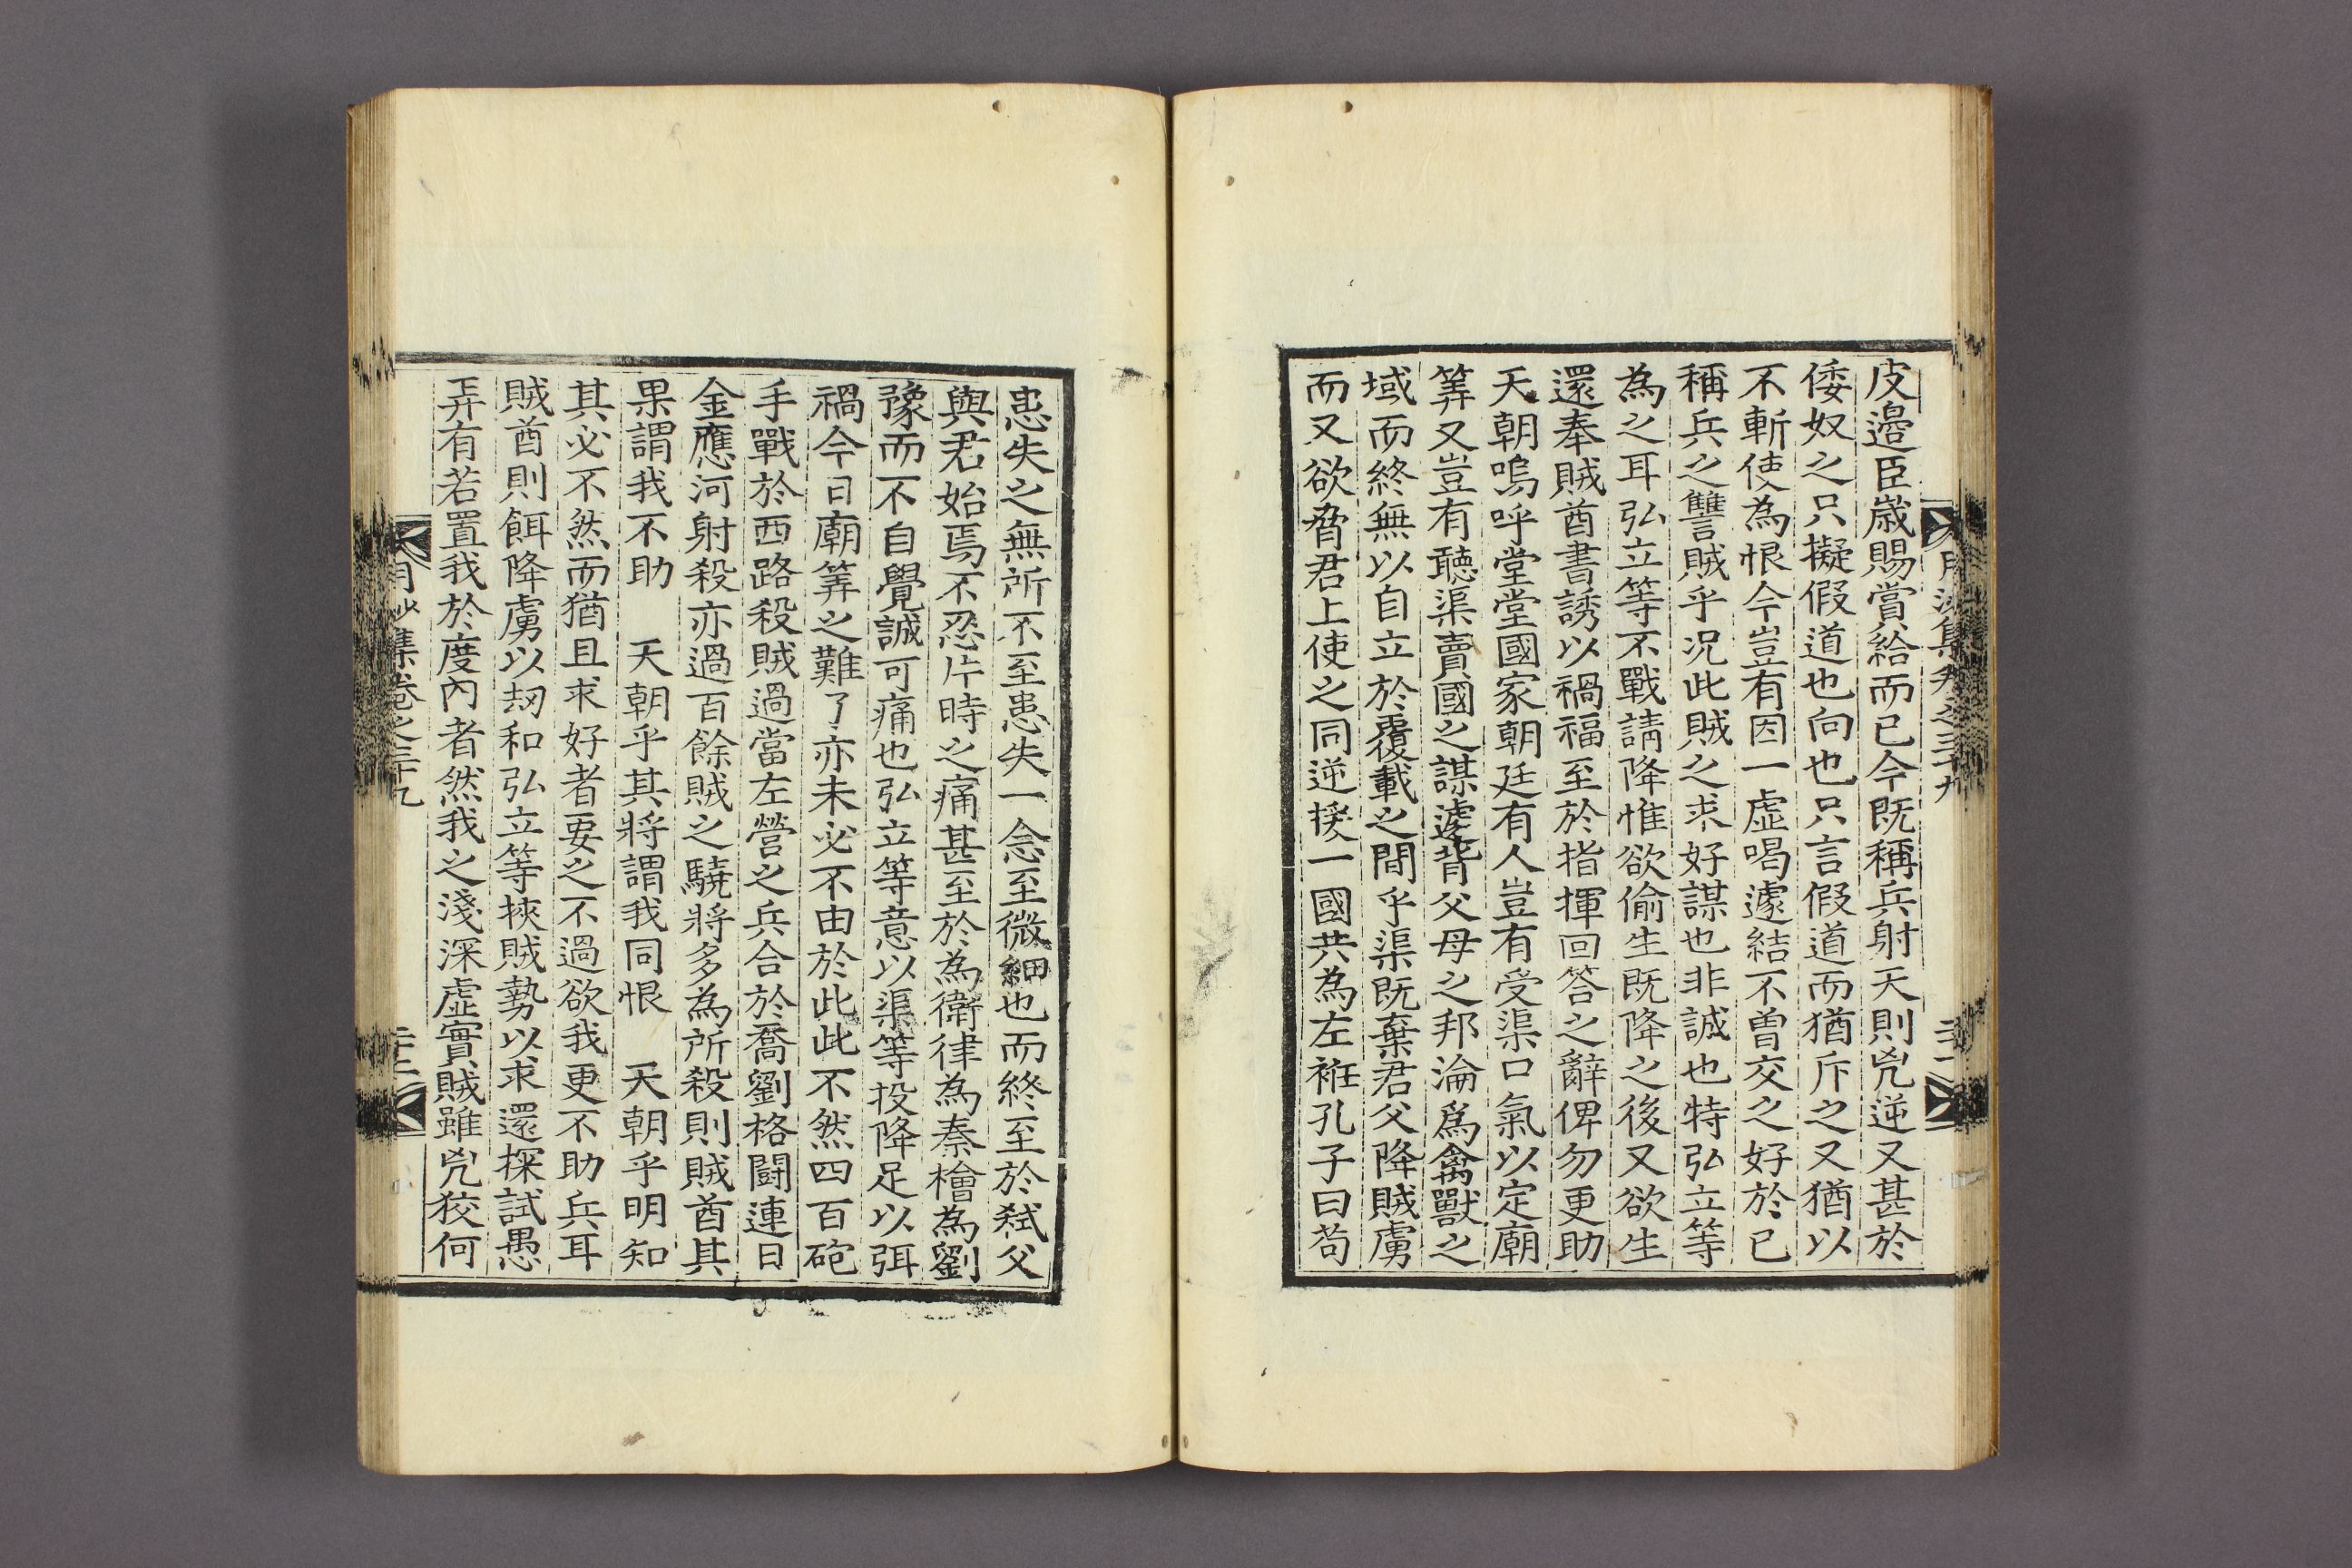 皮邉臣歲賜賞給而已今既稱兵射天則兇逆又甚於
倭奴之只擬假道也向也只言假道而猶斥之又猶以
不斬使為恨今豈有因一虛喝遽結不曾交之好於已
稱兵之讐賊乎況此賊之求好謀也非誠也特弘立等
為之耳弘立等不戰請降惟欲偷生既降之後又欲生
還奉賊酋書誘以禍福至於指揮回答之辭俾勿更助
天朝嗚呼堂堂國家朝廷有人豈有受渠口氣以定廟
筭又豈有聽渠賣國之謀遽背父母之邦淪爲禽獸之
域而終無以自立於覆載之間乎渠既棄君父降賊虜
而又欲脅君上使之同逆援一國共為左袵孔子曰苟
患失之無所不至患失一念至微細也而終至於弑父
與君始焉不忍片時之痛甚至於為衛律為秦檜為劉
豫而不自覺誠可痛也弘立等意以渠等投降足以弭
禍今日廟筭之難了亦未必不由於此此不然四百砲
手戰於西路殺賊過當左營之兵合於喬劉格鬪連日
金應河射殺亦過百餘賊之驍將多為所殺則賊酋其
果謂我不助　天朝乎其將謂我同恨　天朝乎明知
其必不然而猶且求好者要之不過欲我更不助兵耳
賊酋則餌降虜以刼和弘立等挾賊勢以求還探試愚
弄有若置我於度內者然我之淺深虛實賊雖兇狡何
月沙集卷之三十九